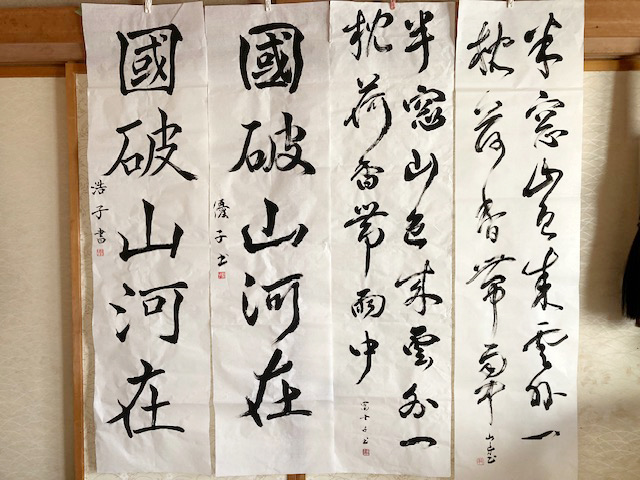 半窓山色来雲外一
枕荷香帯雨中
半窓山色来雲外一
枕荷香帯雨中
國破山河在
優子书
國破山河在
浩子書